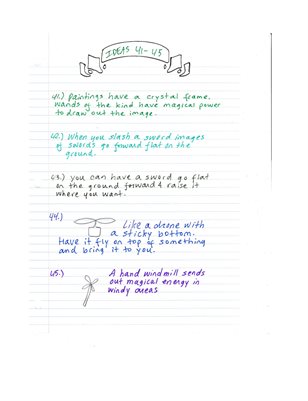 IDEAS 41-45
41.) Paintings have a crystal frame.
Wands of the kind have magical power
to draw out the image.
42.) When you slash a sword images
of swords go forward flat on the
ground.
43.) you can have a sword go flat
on the ground forward & raise it
where you want.
44.)
Like a drone with
a sticky bottom.
Have it fly on top of something
and bring it to you.
45.)
A hand windmill sends
out magical energy in
windy areas